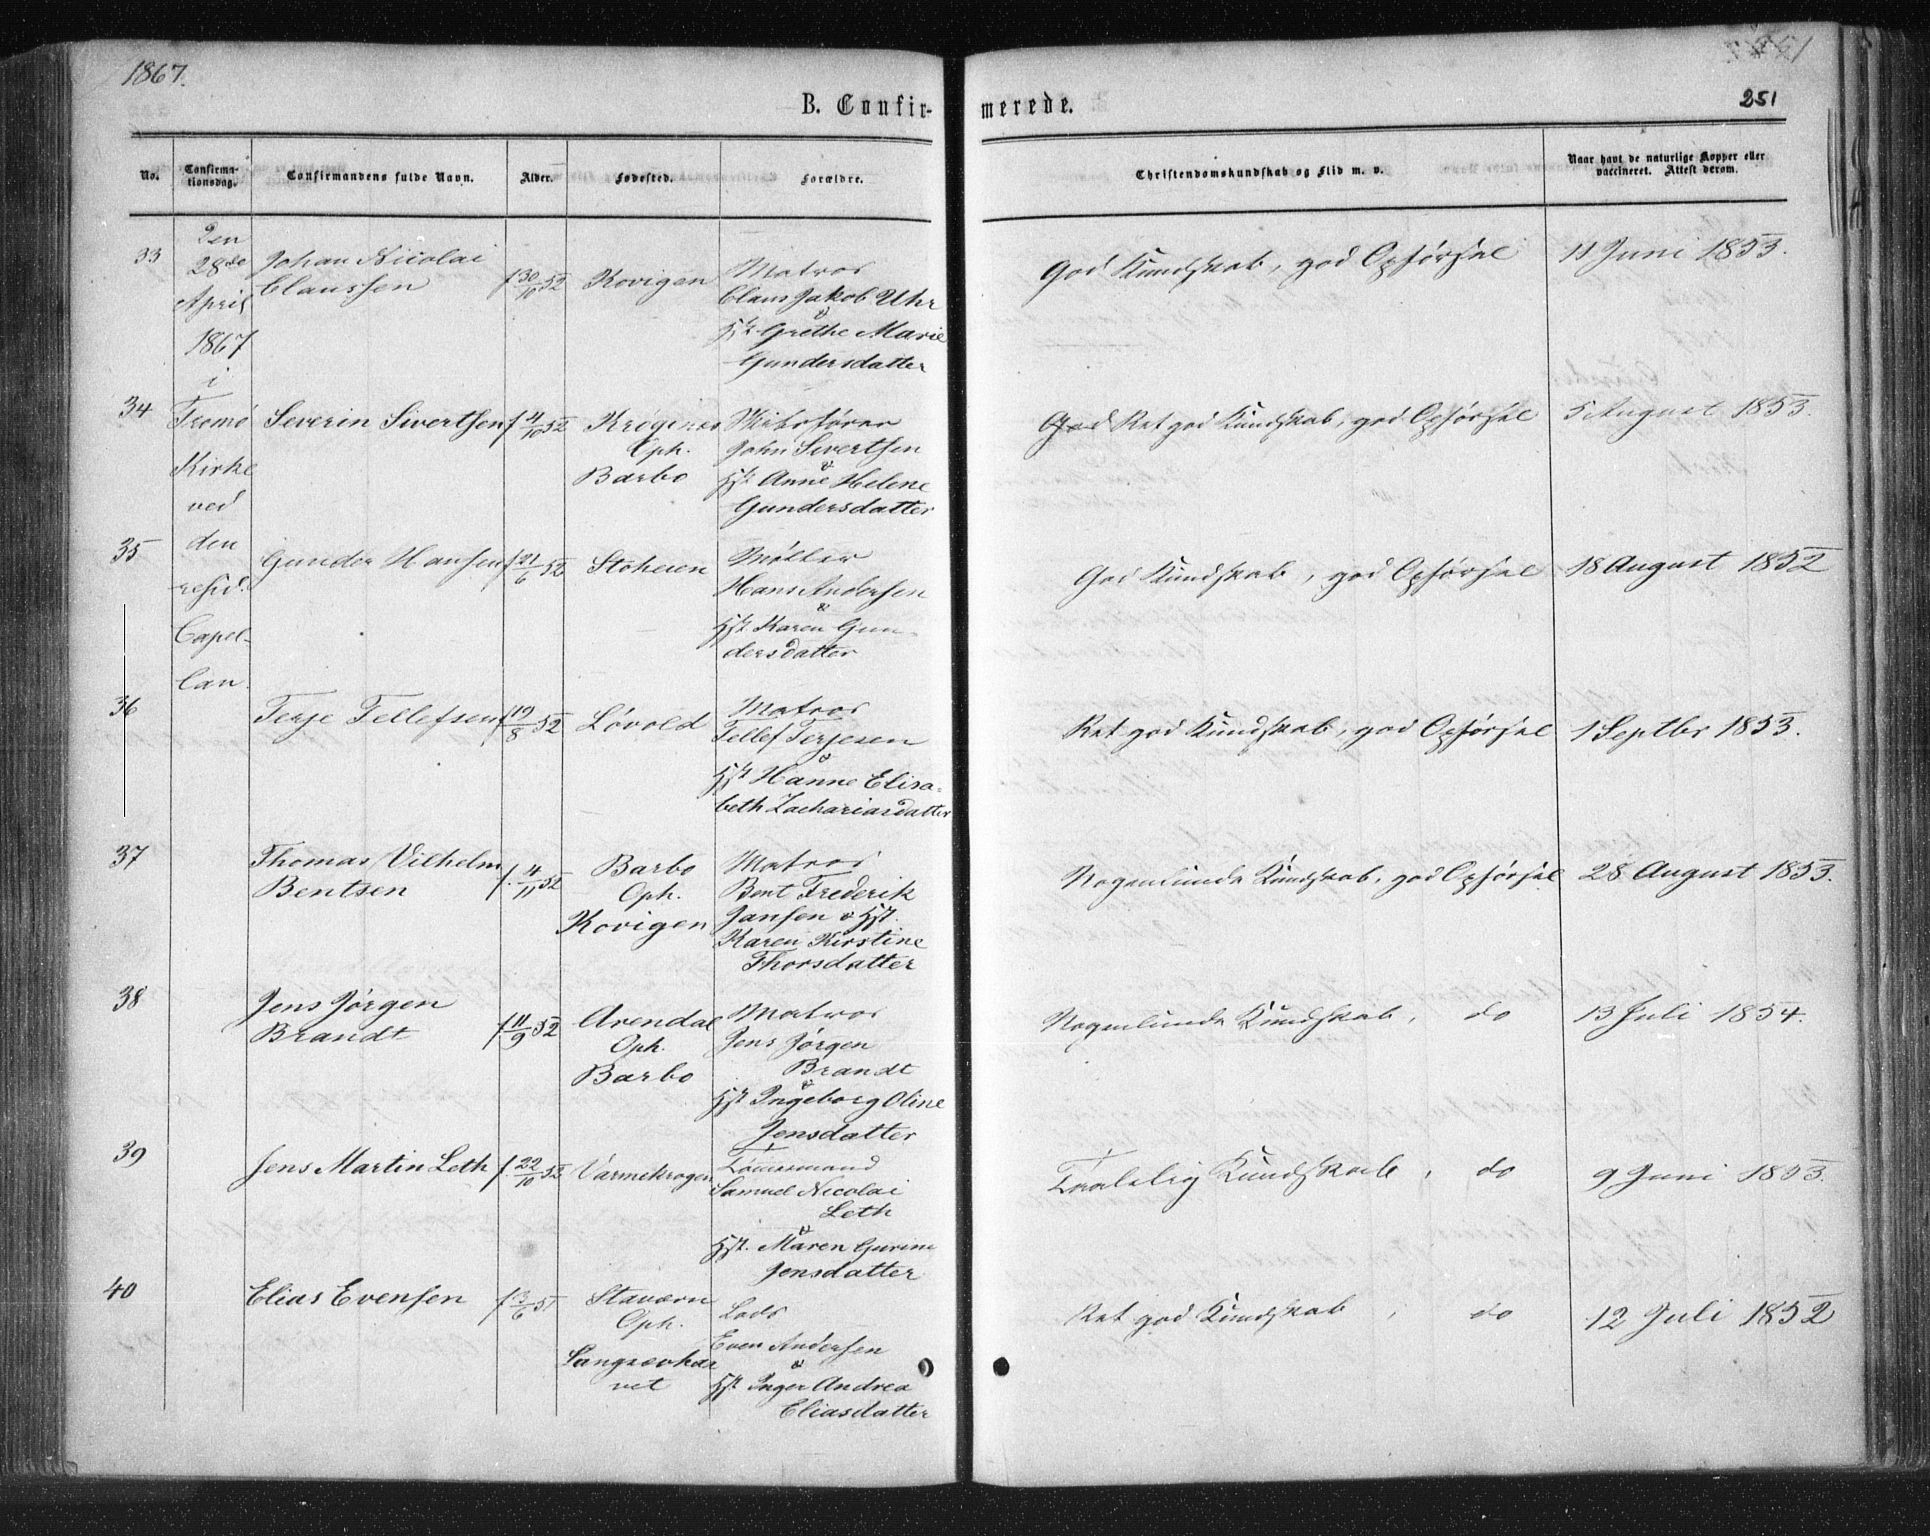 1867.
251
B. Confirmerede.
No.
Confirmationsdag.
Confirmandens fulde Navn.
Alder.
Fødested.
Forældre.
Christendomskundskab og Flid m. v.
Naar havt de naturlige Kopper eller
vaccineret. Attest derom.
Den
28de
April
1867
i
Tromø
Kirke
ved
den
resid.
Capel-
lan.
33
Johan Nicolai
Claussen
f. 30/10 52
Kovigen
Matros
Claus Jakob Uhr
&
Hst. Grethe Marie
Gundersdatter
God Kundskab, god Opførsel
11 Juni 1853.
34
Severin Sivertsen
f. 4/10 52
Krøgenes
Oph.
Barbo
John Sivertsen
&
Hst. Anne Helene
Gundersdatter
God Ret god Kundskab, god Opførsel
5 August 1853.
35
Gunder Hansen
f. 21/6 52
Støheien
Møller
Hans Andersen
&
Hst. Karen Gun-
dersdatter
God Kundskab, god Opførsel
18 August 1852
36
Terje Tellefsen
f. 19/8 52
Løvold
Matros
Tellef Terjesen
&
Hst. Hanne Elisa-
beth Zachariasdatter
Ret god Kundskab, god Opførsel
1 Septbr 1853.
37
Thomas Vilhelm
Bentsen
f. 4/11 52
Barbo
Oph.
Kovigen
Matros
Bent Frederik
Jansen & Hst.
Karen Kirstine
Thorsdatter
Nogenlunde Kundskab, god Opførsel
28 August 1853.
38
Jens Jørgen
Brandt
f. 11/9 52
Arendal
Oph.
Barbo
Matros
Jens Jørgen
Brandt
&
Hst. Ingeborg Oline
Jensdatter
Nogenlunde Kundskab, do
13 Juli 1854.
39
Jens Martin Leth
f. 22/10 52
Varmekrogen
Tømmermand
Samuel Nicolai
Leth
&
Hst. Maren Gurine
Jensdatter
Taalelig Kundskab, do
9 Juni 1853.
40
Elias Evensen
f. 13/6 51
Staværn
Oph.
Langsævha
vet
Lods
Even Andersen
&
Hst. Inger Andrea
Eliasdatter
Ret god Kundskab, do
12 Juli 1852